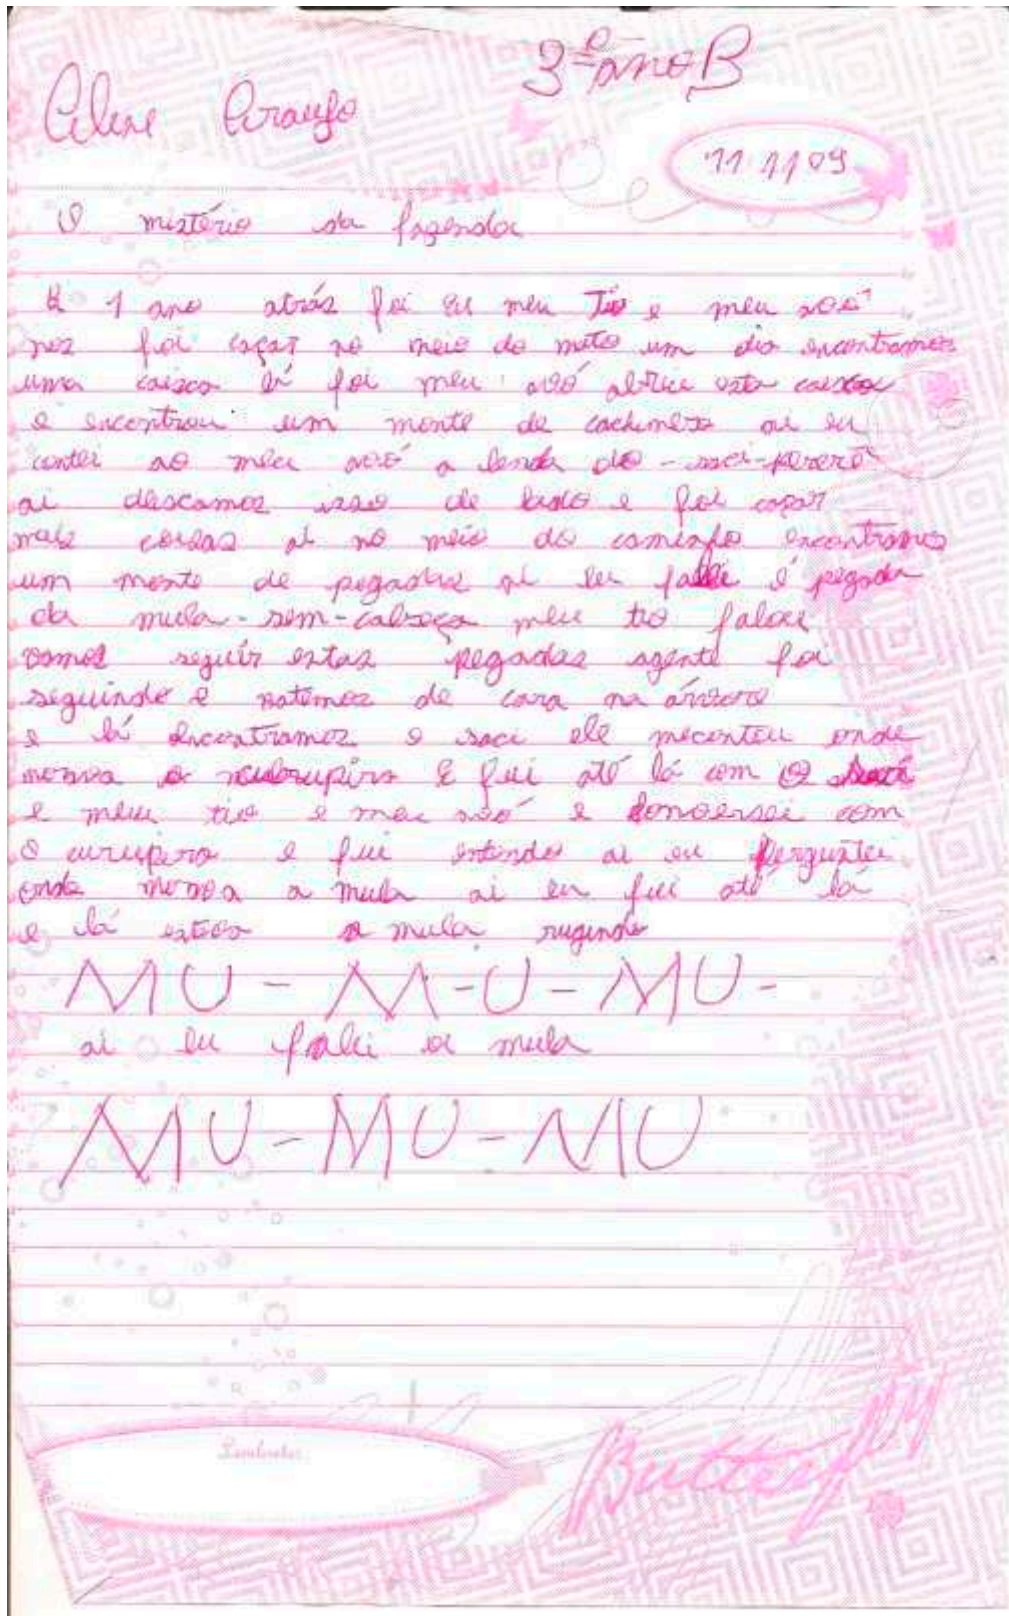 3º ano B
Aline Araujo
11 11 09
O mistério da fazenda
A 1 ano atrás foi eu meu Tio e meu avô
nos foi caçar no meio do mato um dia encontramos
uma caixa lá foi meu avó abriu esta caixa
e encontrou um monte de cachimbo ai eu
contei ao meu avó a lenda do - saci-pererê
ai deixamos isso de lado e foi caçar
mais coisas ai no meio do caminho encontramos
um monte de pegadas ai eu falei é pegada
da mula-sem-cabeça meu tio falou
vamos seguir estas pegadas agente foi
seguindo e batemos de cara na árvore
e lá encontramos o saci ele mecontou onde
morava o E fui até lá com o
e meu tio e meu avó e conversei com
o curupira e fui entendo ai eu perguntei
onde morava a mula ai eu fui até lá
e lá estava a mula rugindo
MU - M-U - MU -
ai eu falei a mula
MU - MU - MU
Butterfly